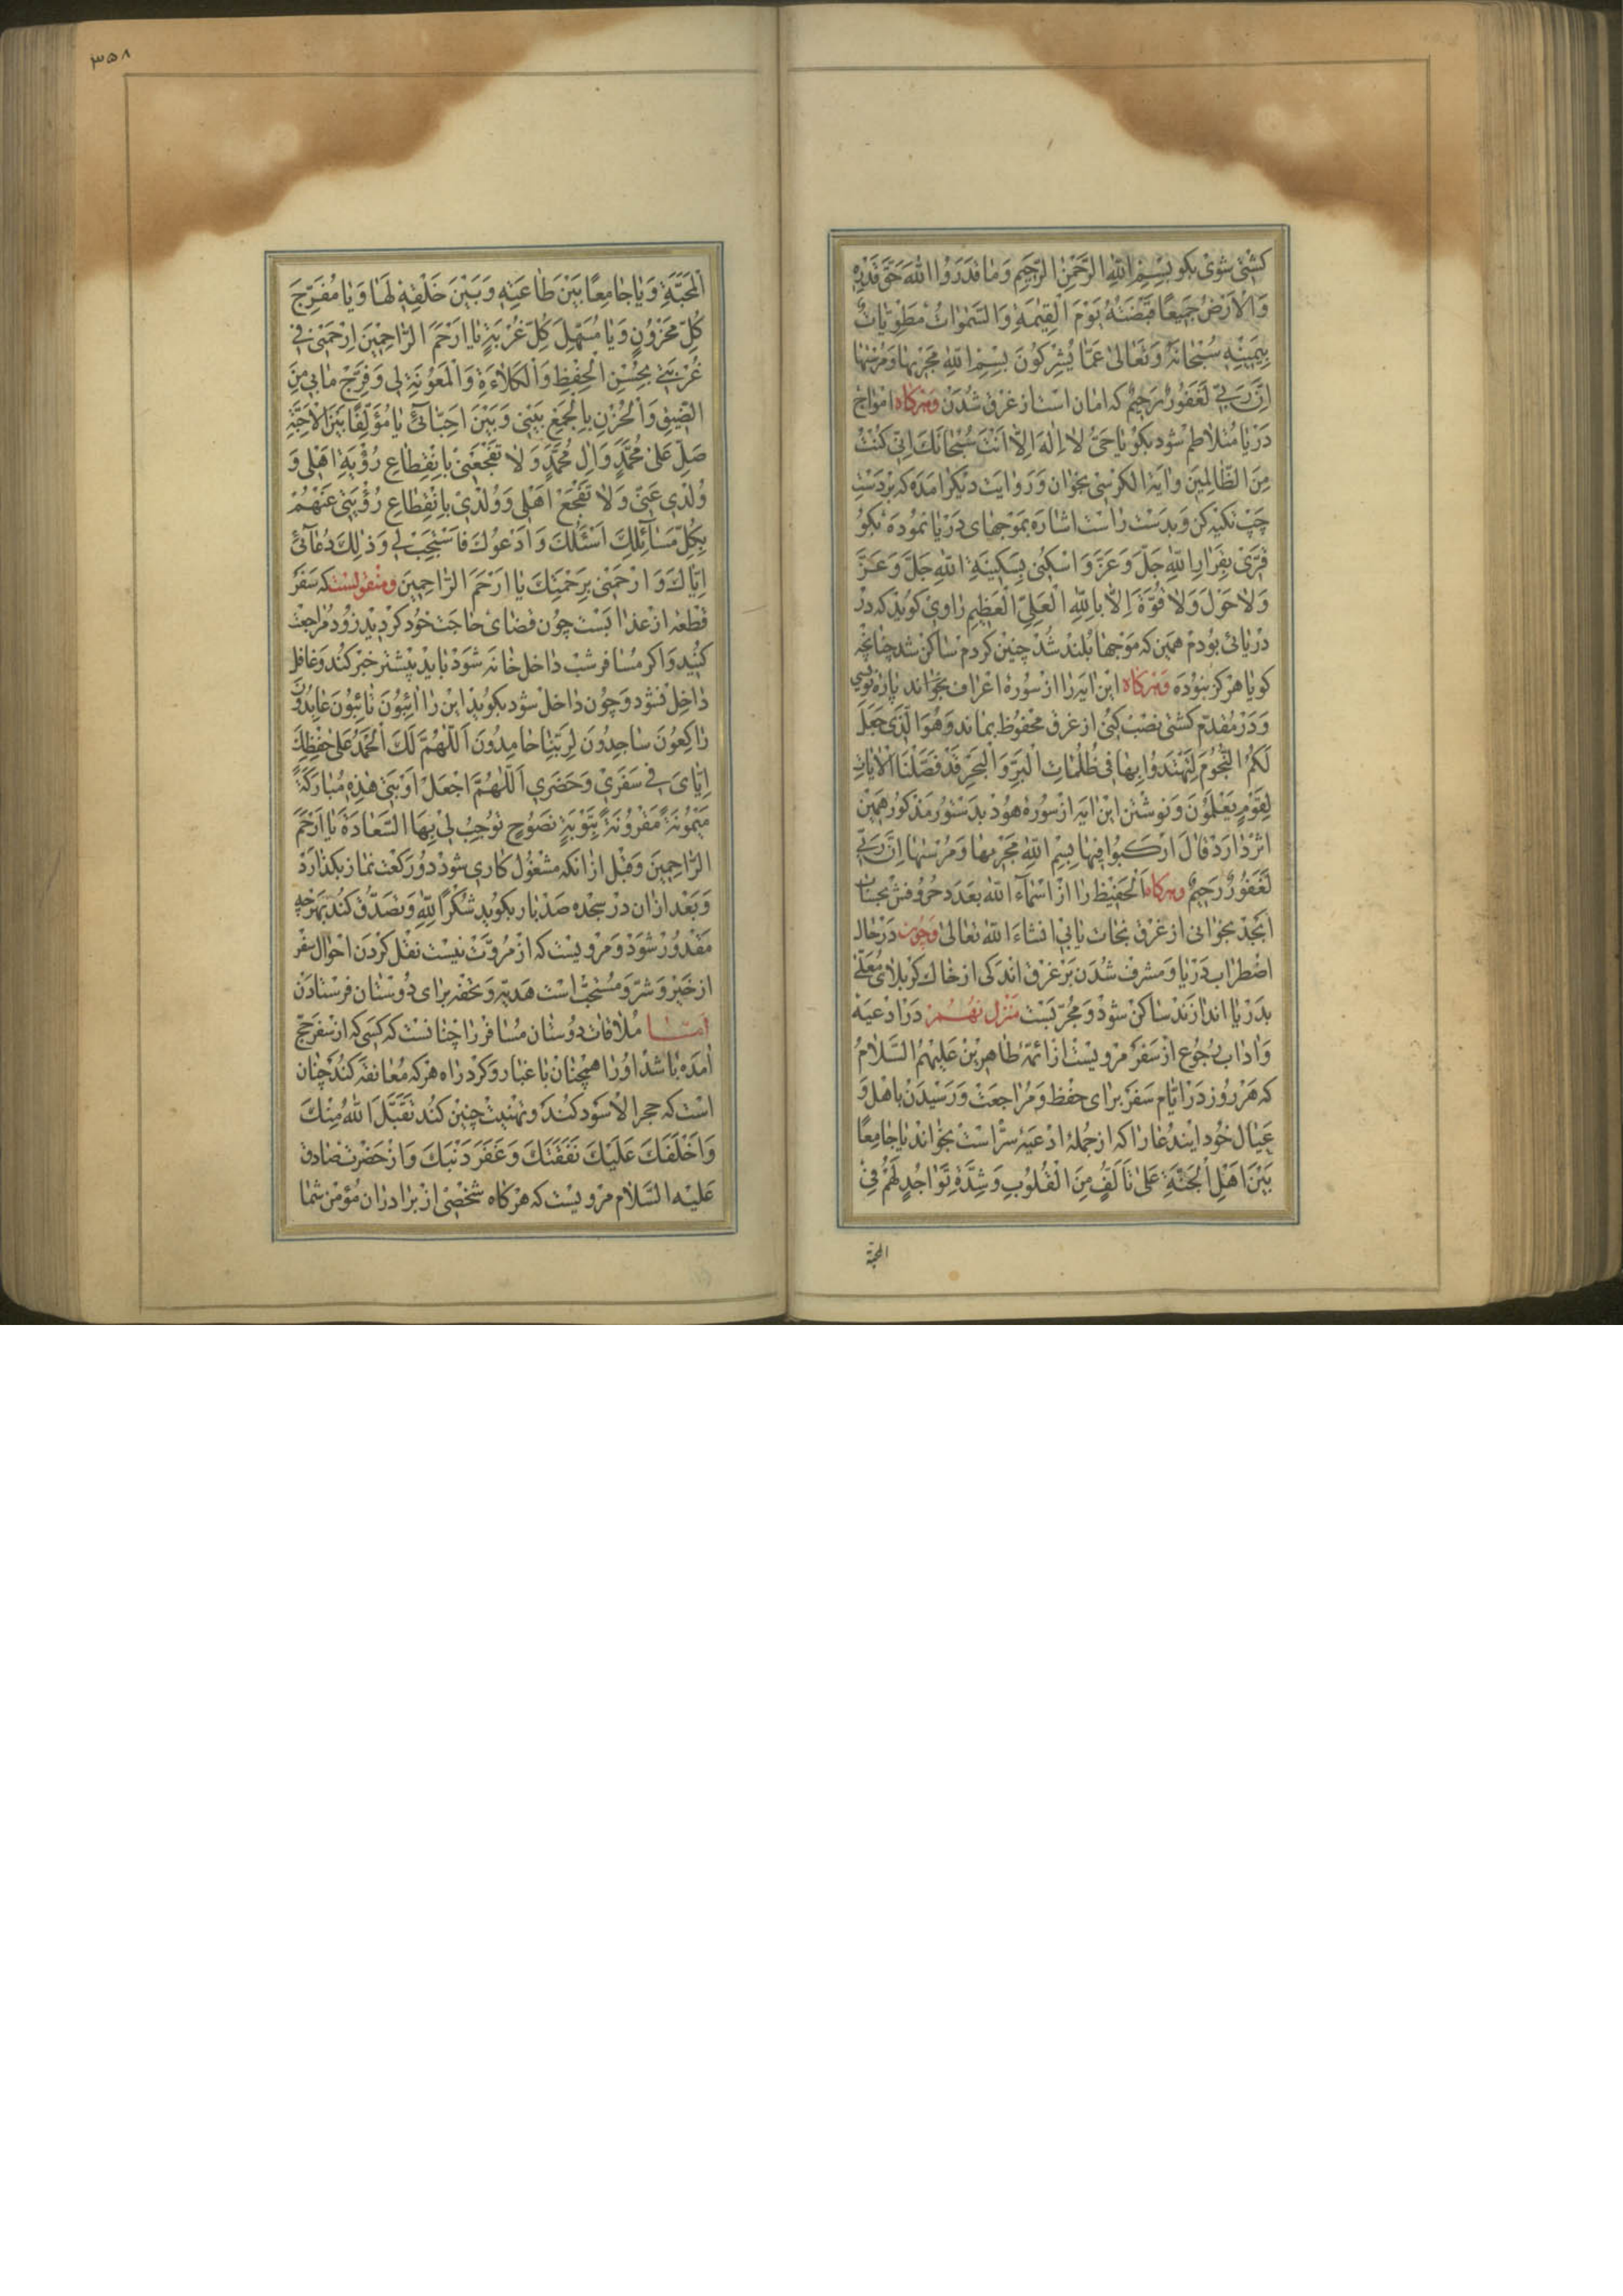 کشتی شوی بکو بِسْمِ اللّٰهِ الرَّحْمٰنِ الرَّحیمِ وَمٰا قَدَرَوُا اللّٰهَ حَقَّ قَدْرِهِ
وَالْاَرْضُ جَمیعًا قَبْضَتُهُ یَوْمَ الْقِیٰمَةِ وَالسَّمٰوٰاتُ مَطْوِیّٰاتٌ
بِیَمینِهِ سُبْحٰانَهُ وَتَعٰالیٰ عَمّٰا یُشْرِکُونَ بِسْمِ اللّٰهِ مَجْرٰیهٰا وَمُرْسٰیهٰا
اِنَّ رَبّی لَغَفُورٌ رَحیمٌ که امان است از غرق شدن وهرکاه امواج
دریا متلاطم شود بکو یٰا حَیُّ لٰا اِلٰهَ اِلّٰا اَنْتَ سُبْحٰانَکَ اِنّی کُنْتُ
مِنَ الظّٰالِمینَ وایة الکرسی بخوان وروایت دیکر امده که بر دست
چپ تکیه کن وبدست راست اشاره بموجهای دریا نموده بکو
قِرّی بِقَرٰارِ اللّٰهِ جَلَّ وَعَزَّ وَاسْکُنی بِسَکینَةِ اللّٰهِ جَلَّ وَعَزَّ
وَلٰا حَوْلَ وَلٰا قُوَّةَ اِلّٰا بِاللّٰهِ الْعَلِیِّ الْعَظیمِ راوی کوید که در
دریائی بودم همین که موجها بلند شد چنین کردم ساکن شد چنانچه
کویا هرکز نبوده وهرکاه این ایه را از سورهٔ اعراف بخواند یا بنویسی
ودر مقدم کشتی نصب کنی از غرق محفوظ بماند وَهُوَ الَّذی جَعَلَ
لَکُمُ النُّجُومَ لِتَهْتَدُوا بِهٰا فی ظُلُمٰاتِ الْبَرِّ وَالْبَحْرِ قَدْ فَصَّلْنَا الْاٰیٰاتِ
لِقَوْمٍ یَعْلَمُونَ ونوشتن این ایه از سوره هود بدستور مذکور همین
اثر دارد قٰالَ ارْکَبُوا فیهٰا بِسْمِ اللّٰهِ مَجْرٰیهٰا وَمُرْسٰیهٰا اِنَّ رَبّی
لَغَفُورٌ رَحیمٌ وهرکاه اَلْحَفیظ را از اسماء الله بعدد حروفش بحساب
ابجد بخوانی از غرق نجات یابی انشاء الله تعالی وچون در حال
اضطراب دریا ومشرف شدن بر غرق اندکی از خاک کربلای معلی
بدریا اندازند ساکن شود ومجربست منزل نهم در ادعیه
واداب رجوع از سفر مرویست از ائمهٔ طاهرین علیهم السلام
که هر روز در ایام سفر برای حفظ ومراجعت ورسیدن باهل و
عیال خود ایندعا را که از جملهٔ ادعیهٔ سرّ است بخواند یٰا جٰامِعًا
بَیْنَ اَهْلِ الْجَنَّةِ عَلیٰ تَاَلُّفٍ مِنَ الْقُلُوبِ وَشِدَّةِ تَوٰاجُدٍ لَهُمْ فِی
المحبة
۳۵۸
الْمَحَبَّةِ وَیٰا جٰامِعًا بَیْنَ طٰاعَتِهِ وَبَیْنَ خَلْقِهِ لَهٰا وَیٰا مُفَرِّجَ
کُلِّ مَحْزُونٍ وَیٰا مُسَهِّلَ کُلِّ غُرْبَةٍ یٰا اَرْحَمَ الرّٰاحِمینَ اِرْحَمْنی فی
غُرْبَتی بِحُسْنِ الْحِفْظِ وَالْکَلٰاءَةِ وَالْمَعُونَةِ لی وَفَرِّجْ مٰا بی مِنَ
الضّیقِ وَالْحُزْنِ بِالْجَمْعِ بَیْنی وَبَیْنَ اَحِبّٰائی یٰا مُؤَلِّفًا بَیْنَ الْاَحِبَّةِ
صَلِّ عَلیٰ مُحَمَّدٍ وَاٰلِ مُحَمَّدٍ وَلٰا تَفْجَعْنی بِانْقِطٰاعِ رُؤْیَةِ اَهْلی وَ
وُلْدی عَنّی وَلٰا تَفْجَعْ اَهْلی وَوُلْدی بِانْقِطٰاعِ رُؤْیَتی عَنْهُمْ
بِکُلِّ مَسٰائِلِکَ اَسْئَلُکَ وَاَدْعُوکَ فَاسْتَجِبْ لی وَذٰلِکَ دُعٰائی
اِیّٰاکَ وَارْحَمْنی بِرَحْمَتِکَ یٰا اَرْحَمَ الرّٰاحِمینَ ومنقولست که سفر
قطعه از عذابست چون قضای حاجت خود کردید زود مراجعت
کنید واکر مسافر شب داخل خانه شود باید پیشتر خبر کند وغافل
داخل نشود وچون داخل شود بکوید این را اٰئِبُونَ تٰائِبُونَ عٰابِدُونَ
رٰاکِعُونَ سٰاجِدُونَ لِرَبِّنٰا حٰامِدُونَ اَللّٰهُمَّ لَکَ الْحَمْدُ عَلیٰ حِفْظِکَ
اِیّٰایَ فی سَفَری وَحَضَری اَللّٰهُمَّ اجْعَلْ اَوْبَتی هٰذِهِ مُبٰارَکَةً
مَیْمُونَةً مَقْرُونَةً بِتَوْبَةٍ نَصُوحٍ تُوجِبُ لی بِهَا السَّعٰادَةَ یٰا اَرْحَمَ
الرّٰاحِمینَ وقبل از انکه مشغول کاری شود دو رکعت نماز بکذارد
وبعد از ان در سجده صد بار بکوید شُکْرًا لِلّٰهِ وتصدق کند بهرچه
مقدور شود ومرویست که از مروت نیست نقل کردن احوال سفر
از خیر وشر ومستحب است هدیه وتحفه برای دوستان فرستادن
اما ملاقات دوستان مسافر را چنانست که کسی که از سفر حج
امده باشد او را همچنان با غبار وکرد راه هرکه معانقه کند چنان
است که حجر الاسود کند وتهنیت چنین کند تَقَبَّلَ اللّٰهُ مِنْکَ
وَاَخْلَفَکَ عَلَیْکَ نَفَقَتَکَ وَغَفَرَ ذَنْبَکَ واز حضرت صادق
علیه السلام مرویست که هرکاه شخصی از برادران مؤمن شما